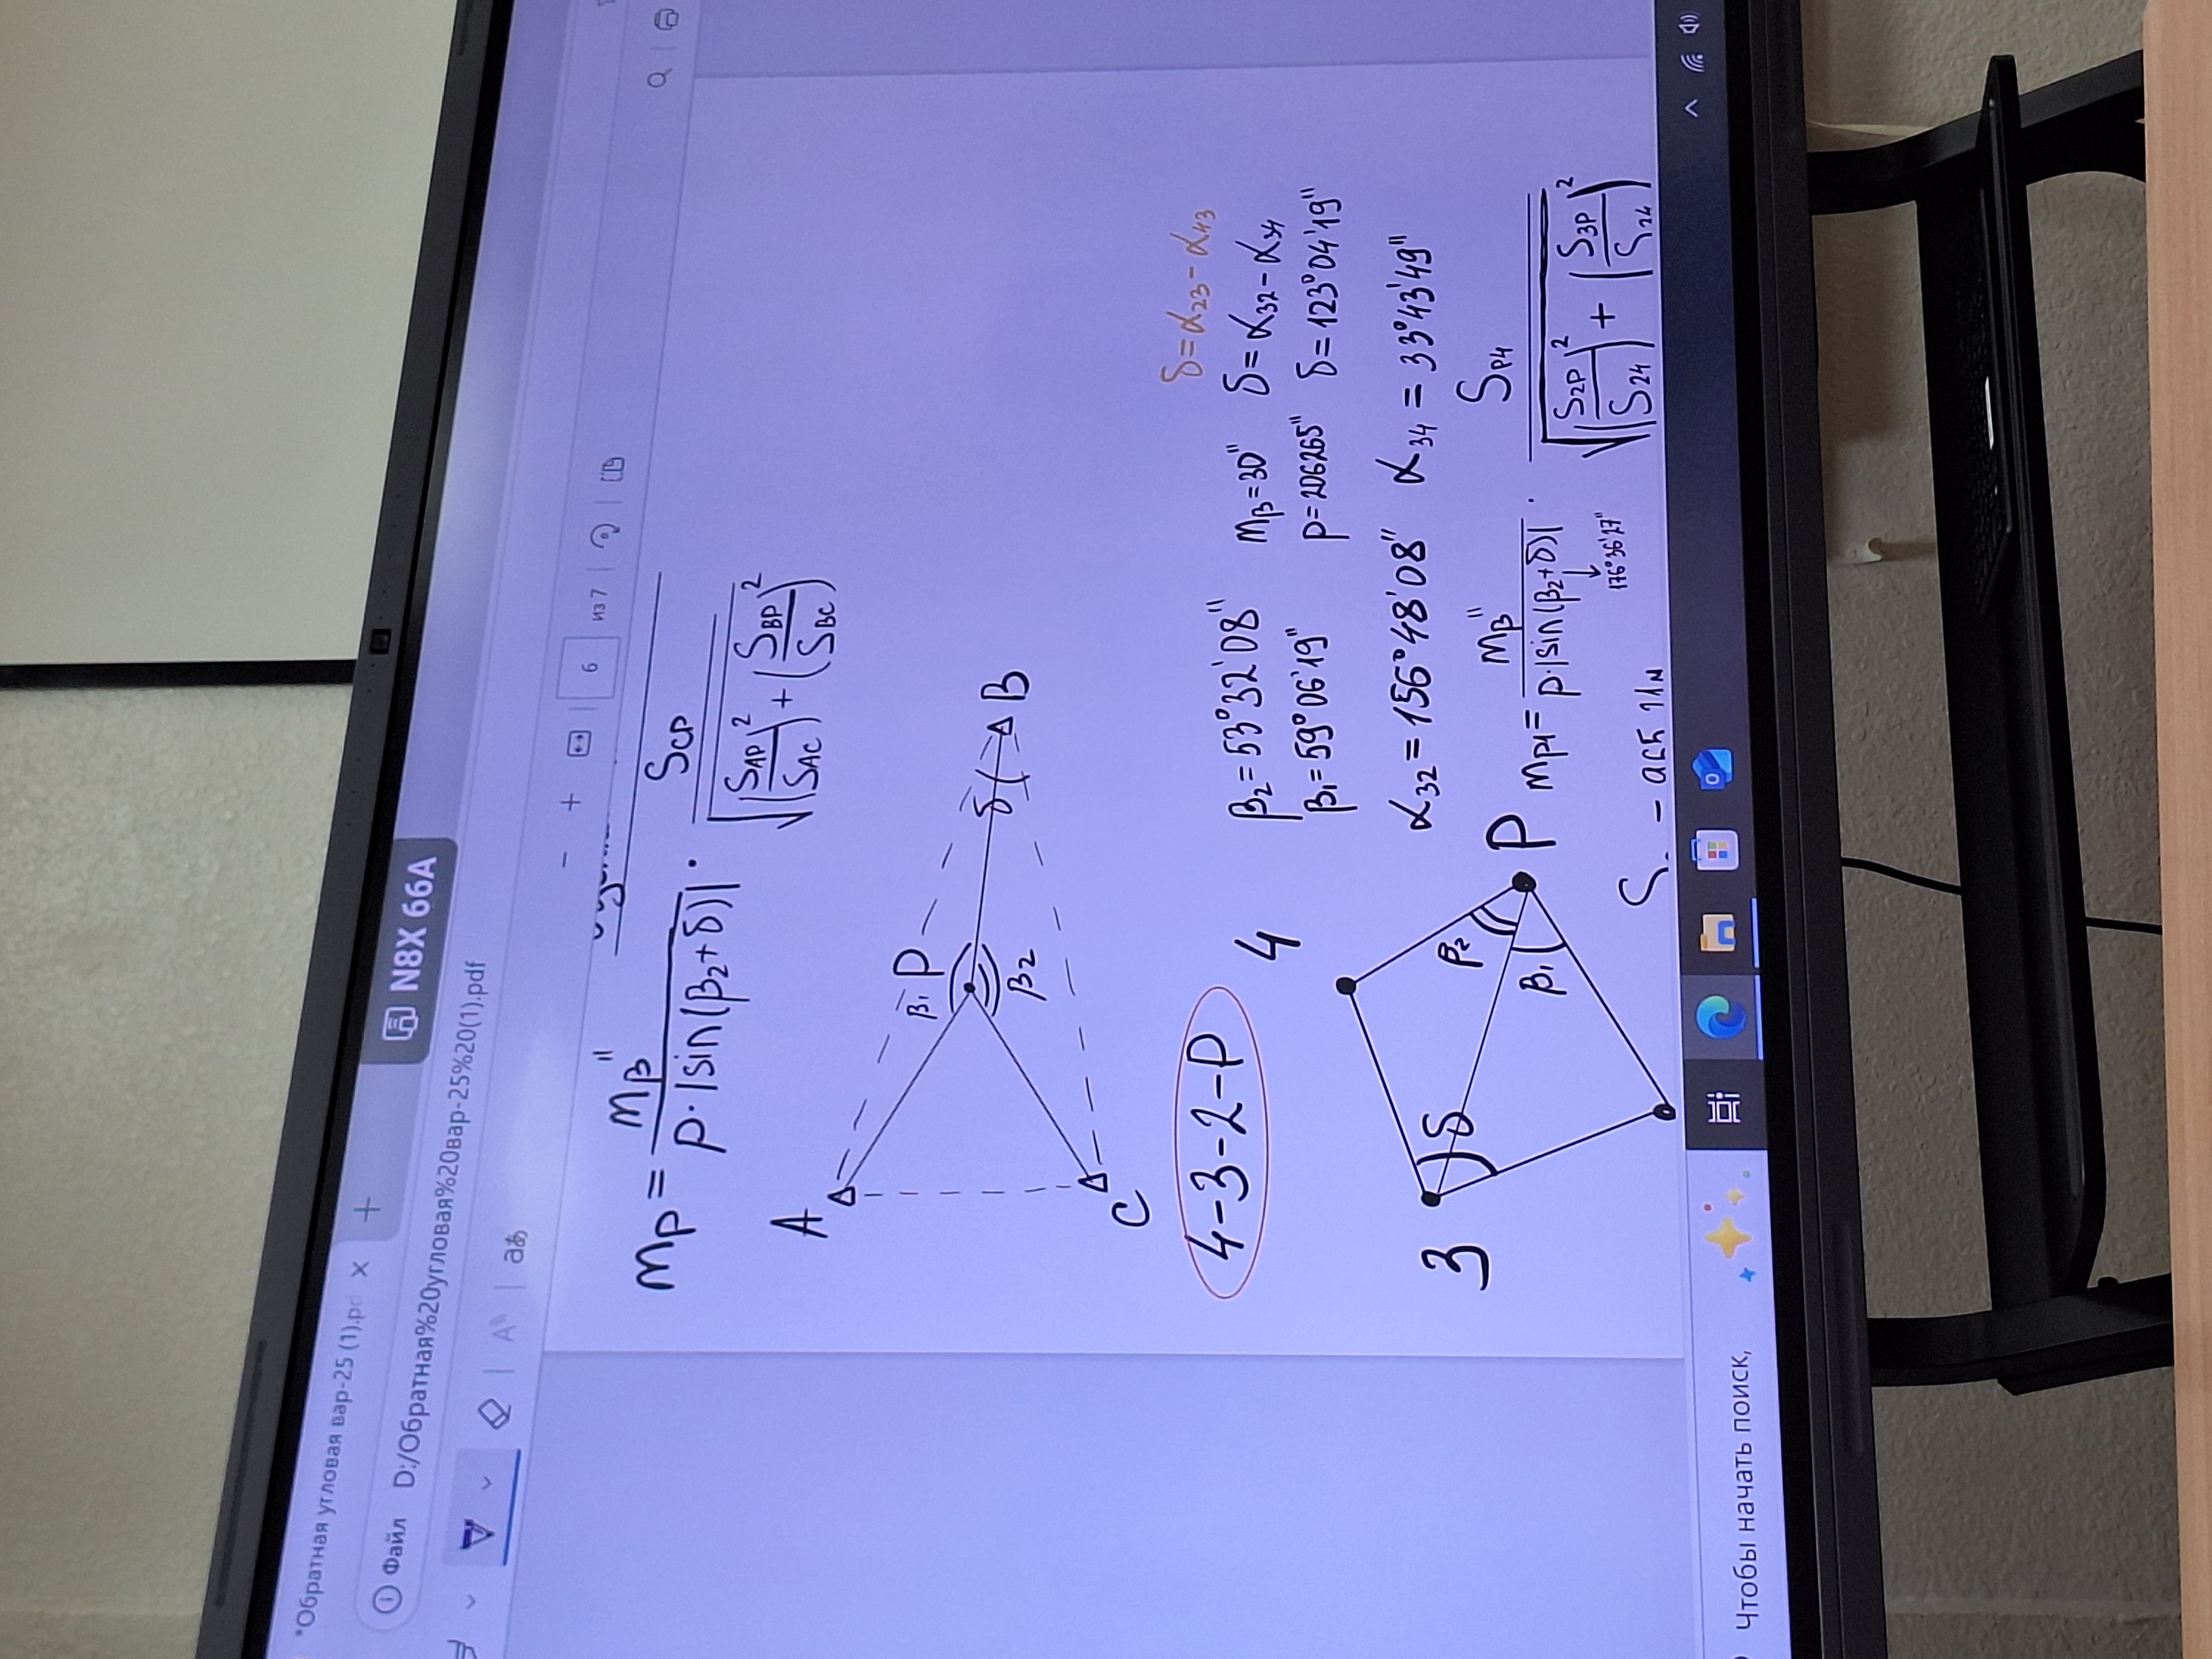 *Обратная угловая вар-25 (1).pd
N8X 66A
Файл D:/Обратная%20угловая%20вар-25%20(1).pdf
аあ
6 из 7
mp = mβ" / ρ·|sin(β2+δ)| · SCP / √((SAP/SAC)² + (SBP/SBC)²)
A
β1 P
β2
δ
B
C
4-3-2-P
δ=α23-α43
β2=53°32'08" mβ=30" δ=α32-α34
β1=59°06'19" ρ=206265" δ=123°04'19"
α32=156°48'08" α34=33°43'49"
4
3
δ
β2
β1
P
mp1= mβ" / ρ·|sin(β2+δ)| · SP4 / √((S2P/S24)² + (S3P/S24)²)
176°36'27"
Чтобы начать поиск,